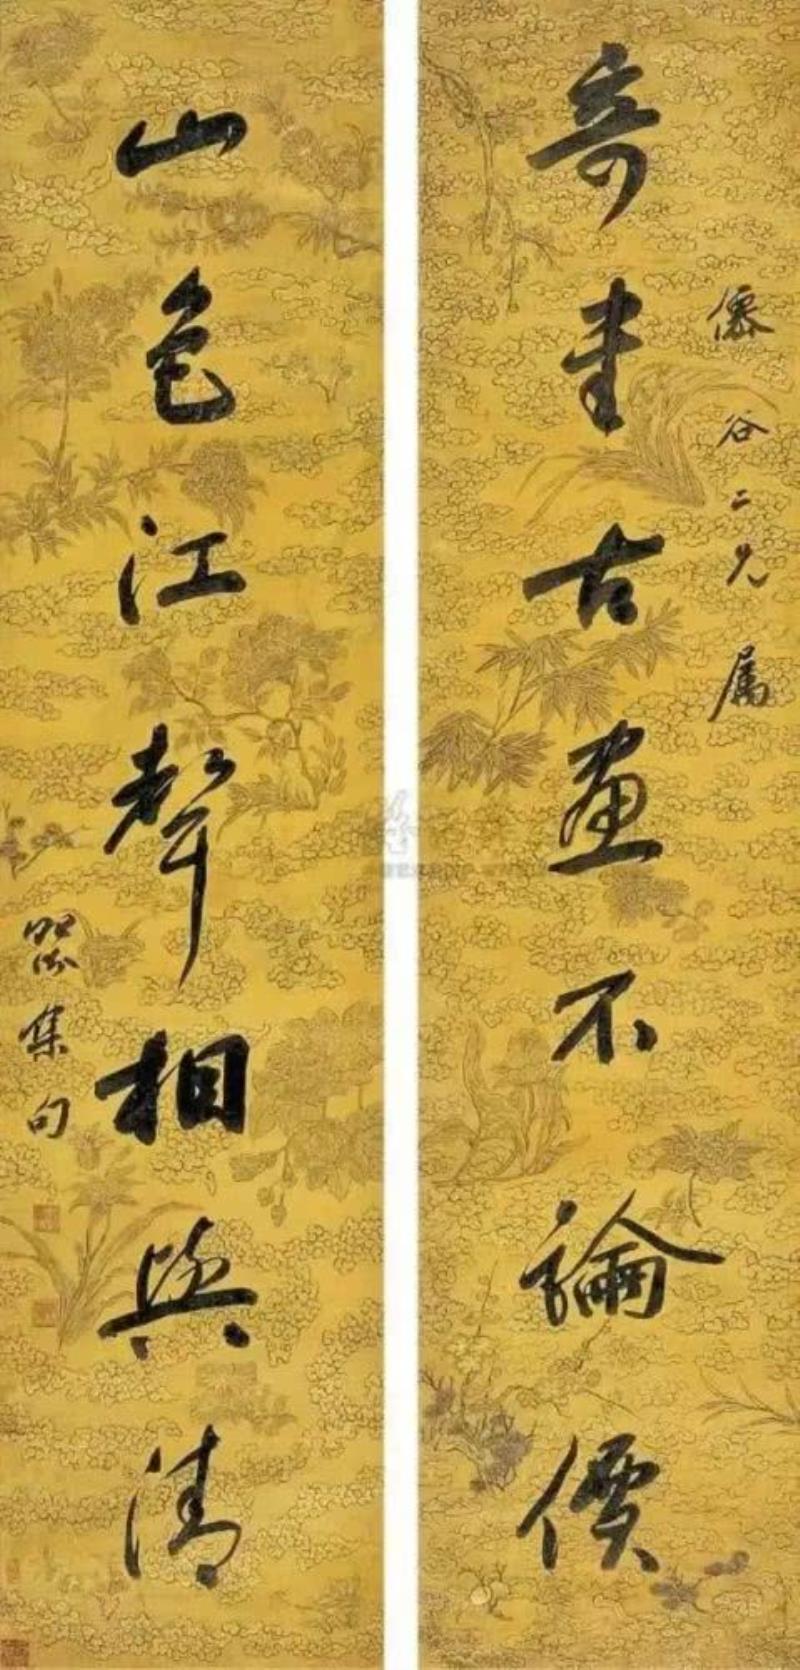 奇書古畫不論價
僊谷二兄属
山色江聲相與清
集句